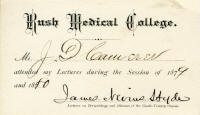 Rush Medical College.
Mr. J. D. Cameron
attended my Lectures during the Session of 1879
and 1880
James Nevins Hyde
Lecturer on Dermatology and Diseases of the Genito-Urinary Organs.